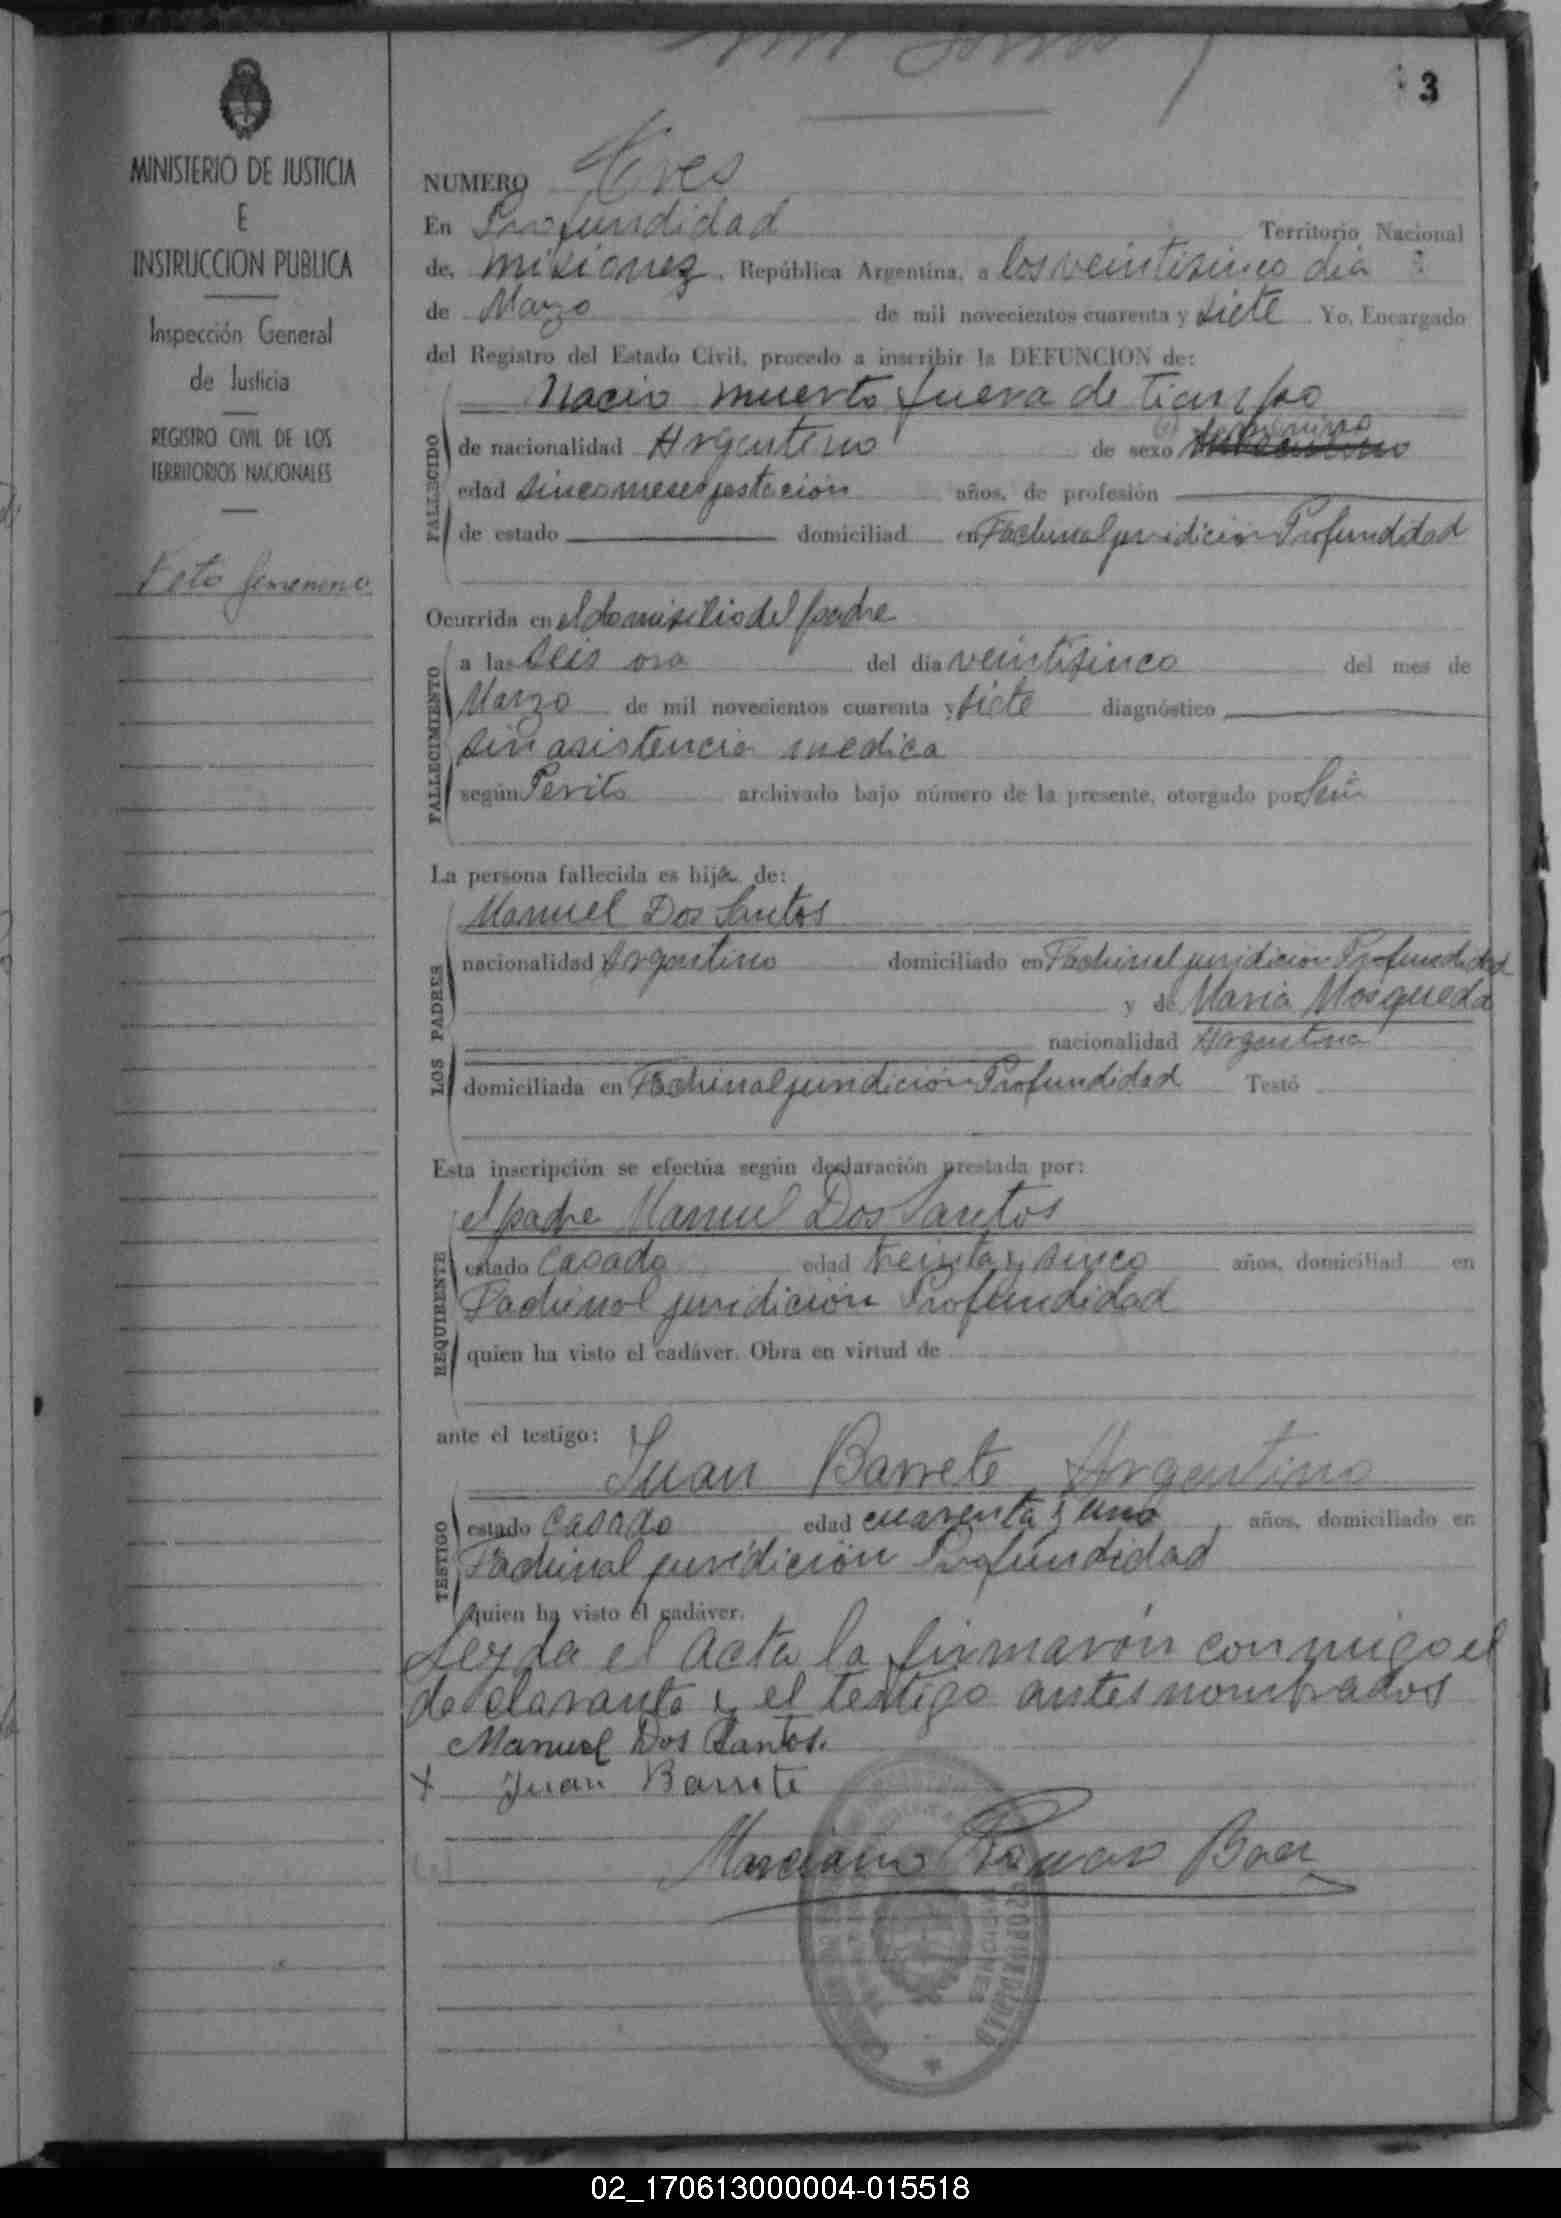 3
MINISTERIO DE JUSTICIA
E
INSTRUCCION PUBLICA
Inspección General
de Justicia
REGISTRO CIVIL DE LOS
TERRITORIOS NACIONALES
Feto femenino
NUMERO Tres
En Profundidad Territorio Nacional
de, misionez, República Argentina, a los veintisinco dia
de Marzo de mil novecientos cuarenta y siete Yo, Encargado
del Registro del Estado Civil, procedo a inscribir la DEFUNCION de:
Nacio muerto fuera de tiempo
FALLECIDO
de nacionalidad Argentino de sexo femenino
edad sinco meses jestacion años, de profesión
de estado domiciliad en Fachinal juridicion Profundidad
Ocurrida en el domisilio del padre
FALLECIMIENTO
a las seis ora del dia veintisinco del mes de
Marzo de mil novecientos cuarenta y siete diagnóstico
sin asistencia medica
según Perito archivado bajo número de la presente, otorgado por
La persona fallecida es hija de:
LOS PADRES
Manuel Dos Santos
nacionalidad Argentino domiciliado en Fachinal juridicion Profundidad
y de Maria Mosqueda
nacionalidad Argentina
domiciliada en Fachinal juridición Profundidad Testó
Esta inscripción se efectúa según declaración prestada por:
REQUIRENTE
el padre Manuel Dos Santos
estado casado edad treinta y sinco años, domiciliad en
Fachinal juridición Profundidad
quien ha visto el cadáver. Obra en virtud de
ante el testigo:
TESTIGO
Juan Barrete Argentino
estado casado edad cuarenta y uno años, domiciliado en
Fachinal juridición Profundidad
quien ha visto el cadáver.
Leyda el acta la firmarón conmigo el
declarante y el testigo antes nombrados
Manuel Dos Santos.
x Juan Barrete
02_170613000004-015518